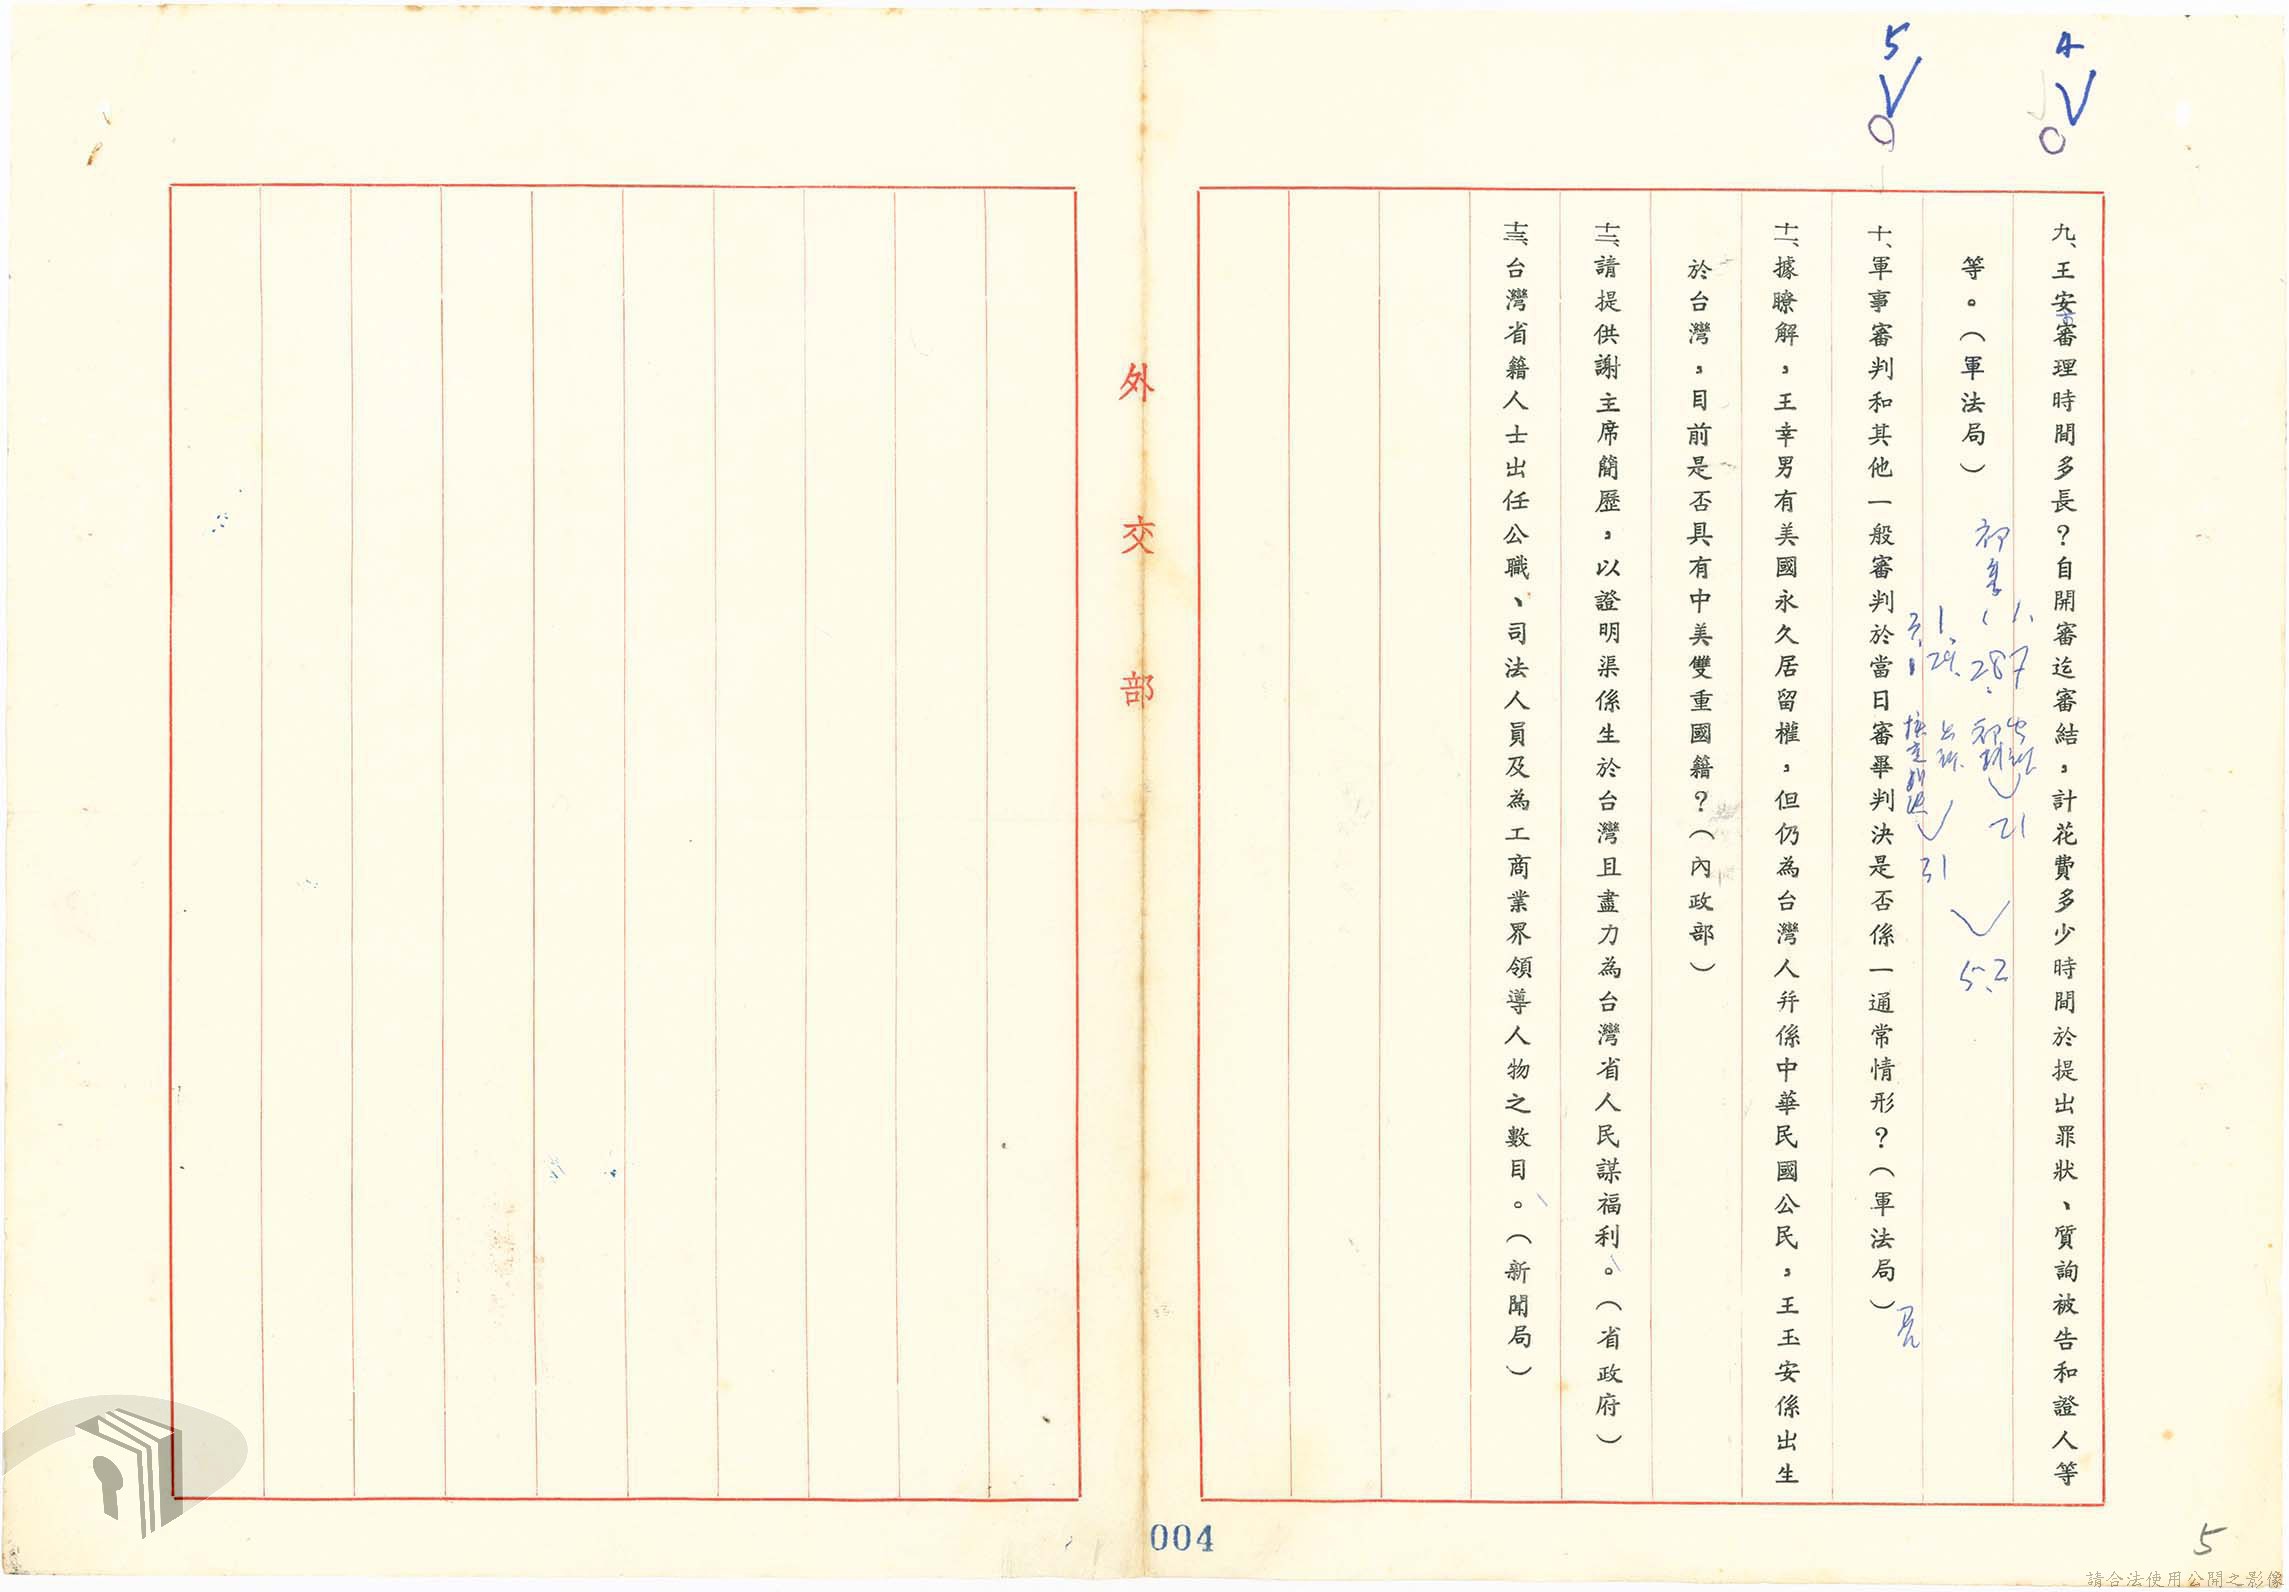 4
5
九、王安審理時間多長？自開審迄審結，計花費多少時間於提出罪狀、質詢被告和證人等
等。（軍法局）
十、軍事審判和其他一般審判於當日審畢判決是否係一通常情形？（軍法局）
十一、據瞭解，王幸男有美國永久居留權，但仍為台灣人幷係中華民國公民，王玉安係出生
於台灣，目前是否具有中美雙重國籍？（內政部）
十二、請提供謝主席簡歷，以證明渠係生於台灣且盡力為台灣省人民謀福利。（省政府）
十三、台灣省籍人士出任公職、司法人員及為工商業界領導人物之數目。（新聞局）
1.7
1.28.
初判
21
1.29.
3.1
31
52
外交部
004
5
請合法使用公開之影像